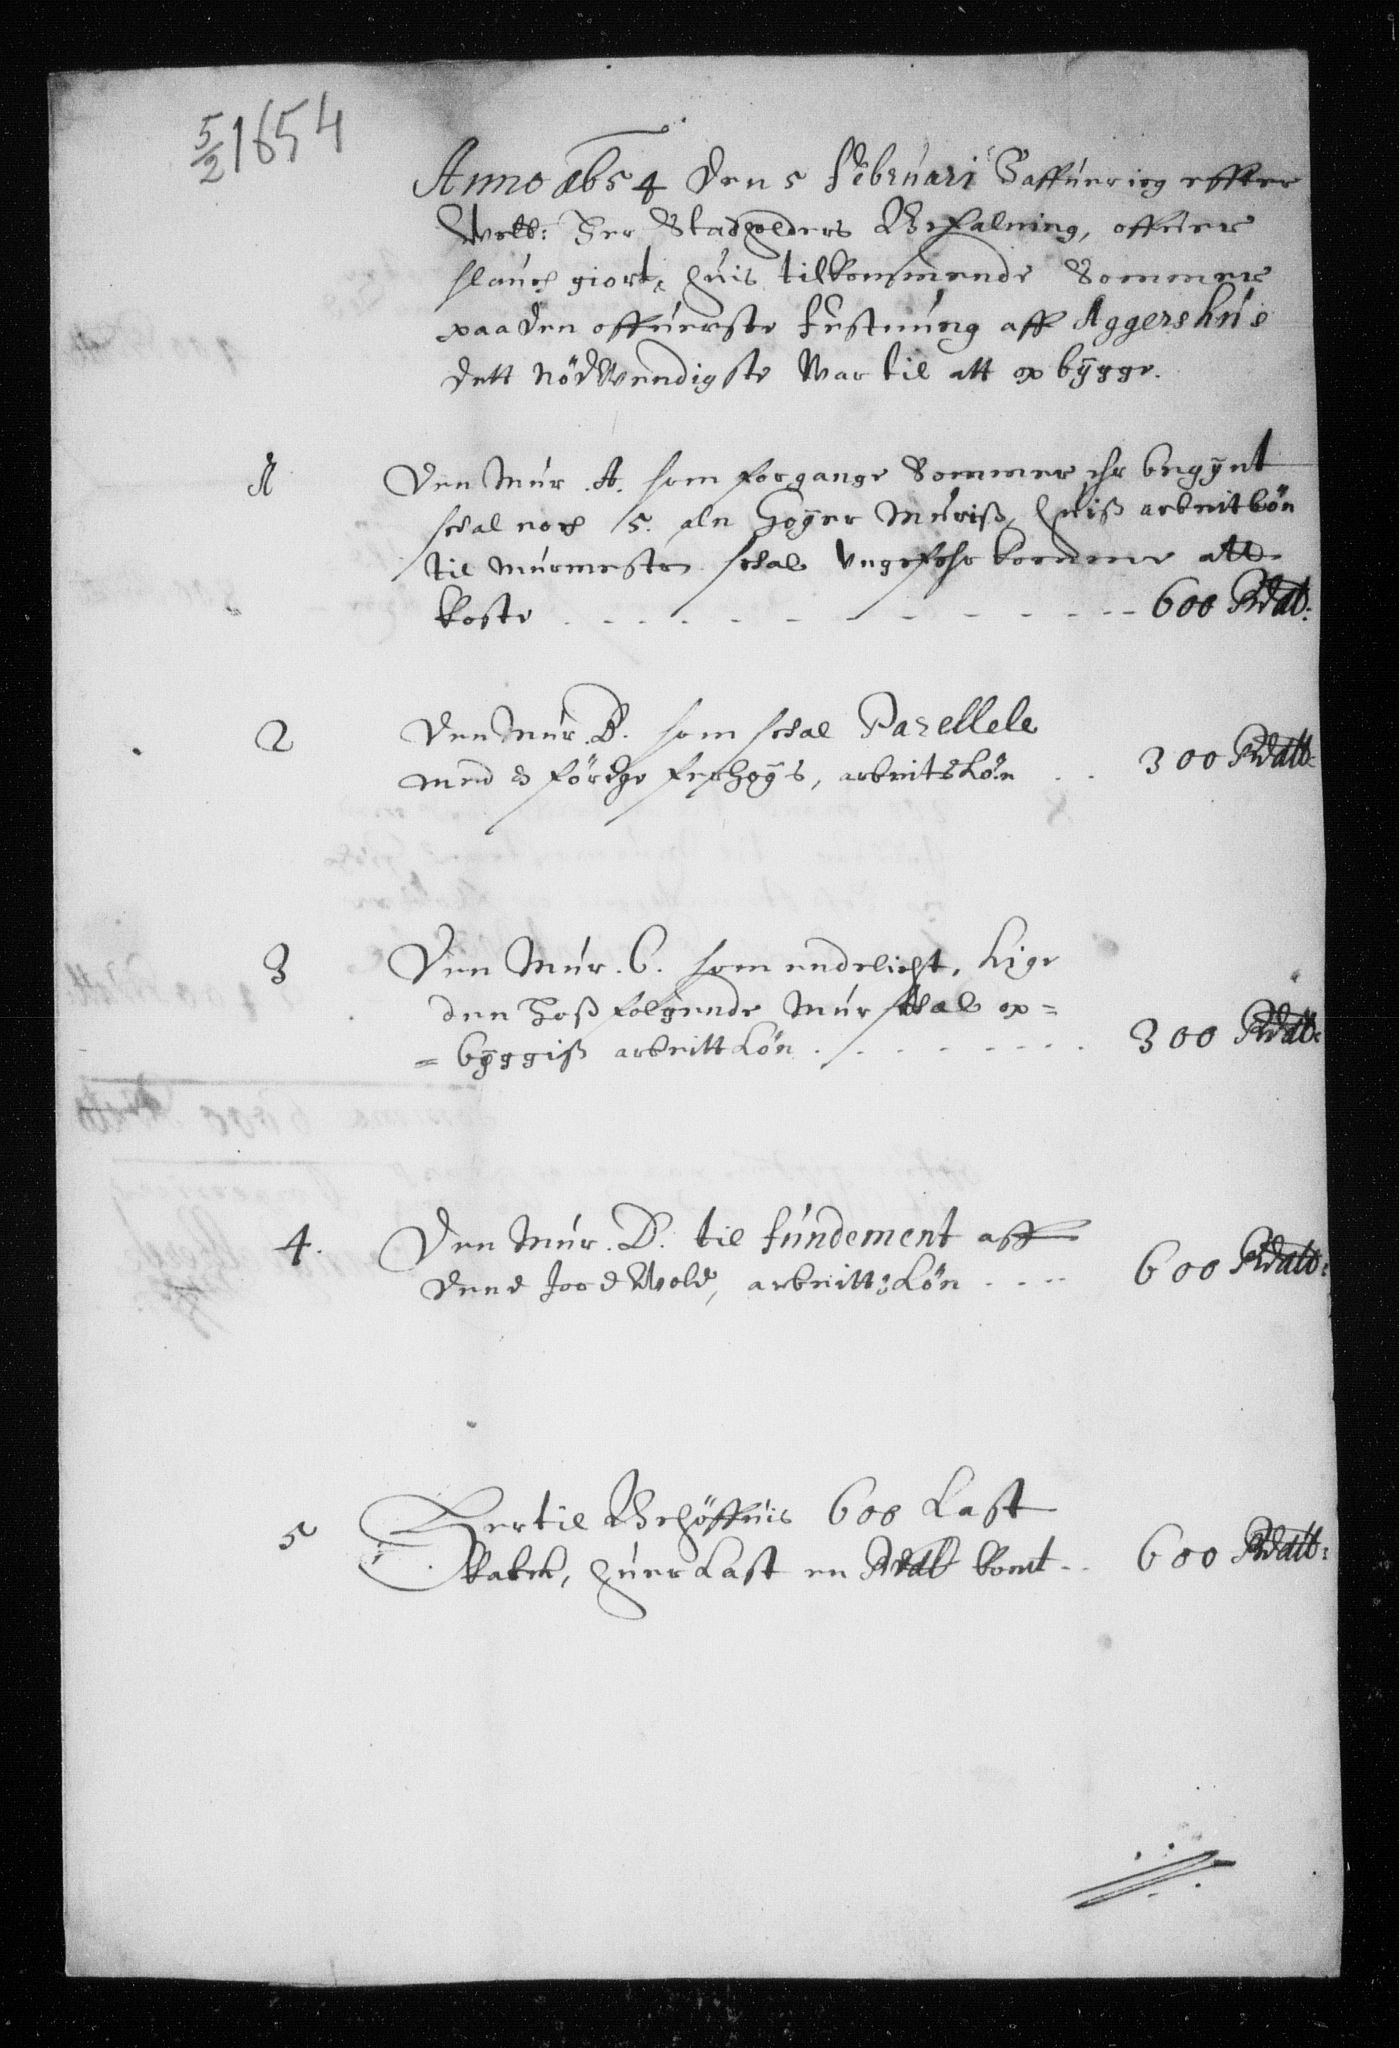 5/2 1654
Anno 1654 den 5 februari Haffuer ieg effter
Welb: Her Stadholders Befalning, offuer
slauch giort, huis tilkommende Sommer
paa den offuerste festnung aff Aggershus
dett nödwendigste war til att opbÿgge.
1 Den Mur .A. som forgange Sommer ehr begÿnt
schal noch 5. aln Hoÿer Muriß, huiß arbeitlön
til murmester schal ungefehr komme att
koste 600 Rdal:
2 Den Mur .B. som schal Parellele
med d förige forhoÿs, arbeitslön 300 Rdall:
3 Den Mur .C. som endelicht, lige
den Hoß folgende Mur schal op=
=bÿggiß arbeitt Lön 300 Rdall:
4. Den Mur .D. til fundement aff
dend Jord Wold, arbeitt:Lön 600 Rdall:
5 Hertil Behöffuis 600 Last
Kalch, huer Last en Rdal komt 600 Rdall: